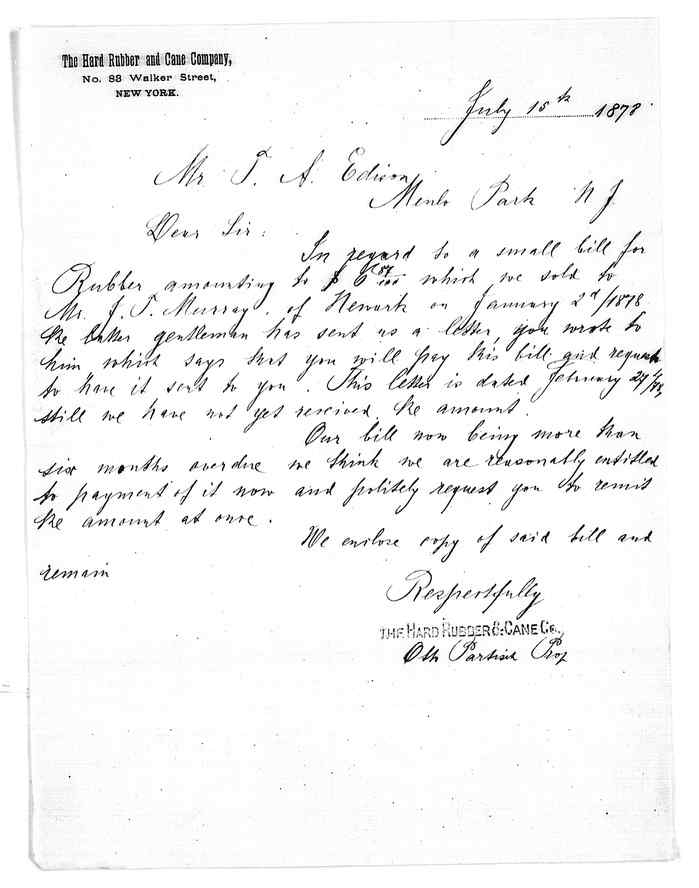 The Hard Rubber and Cane Company,
No. 88 Walker Street,
NEW YORK.
July 15th 1878
Mr T. A. Edison
Menlo Park N J.
Dear Sir:
In regard to a small bill for
Rubber amounting to $ 6 which we sold to
Mr. J. T. Murray, of Newark on January 2d/1878
the latter gentleman has sent us a letter you wrote to
him which says that you will pay this bill and request
to have it sent to you. This letter is dated February
still we have not yet received the amount.
Our bill now being more than
six months overdue we think we are reasonably entitled
to payment of it now and politely request you to remit
the amount at once.
We enclose copy of said bill and
remain
Respectfully
THE HARD RUBBER & CANE CO.,
Prop